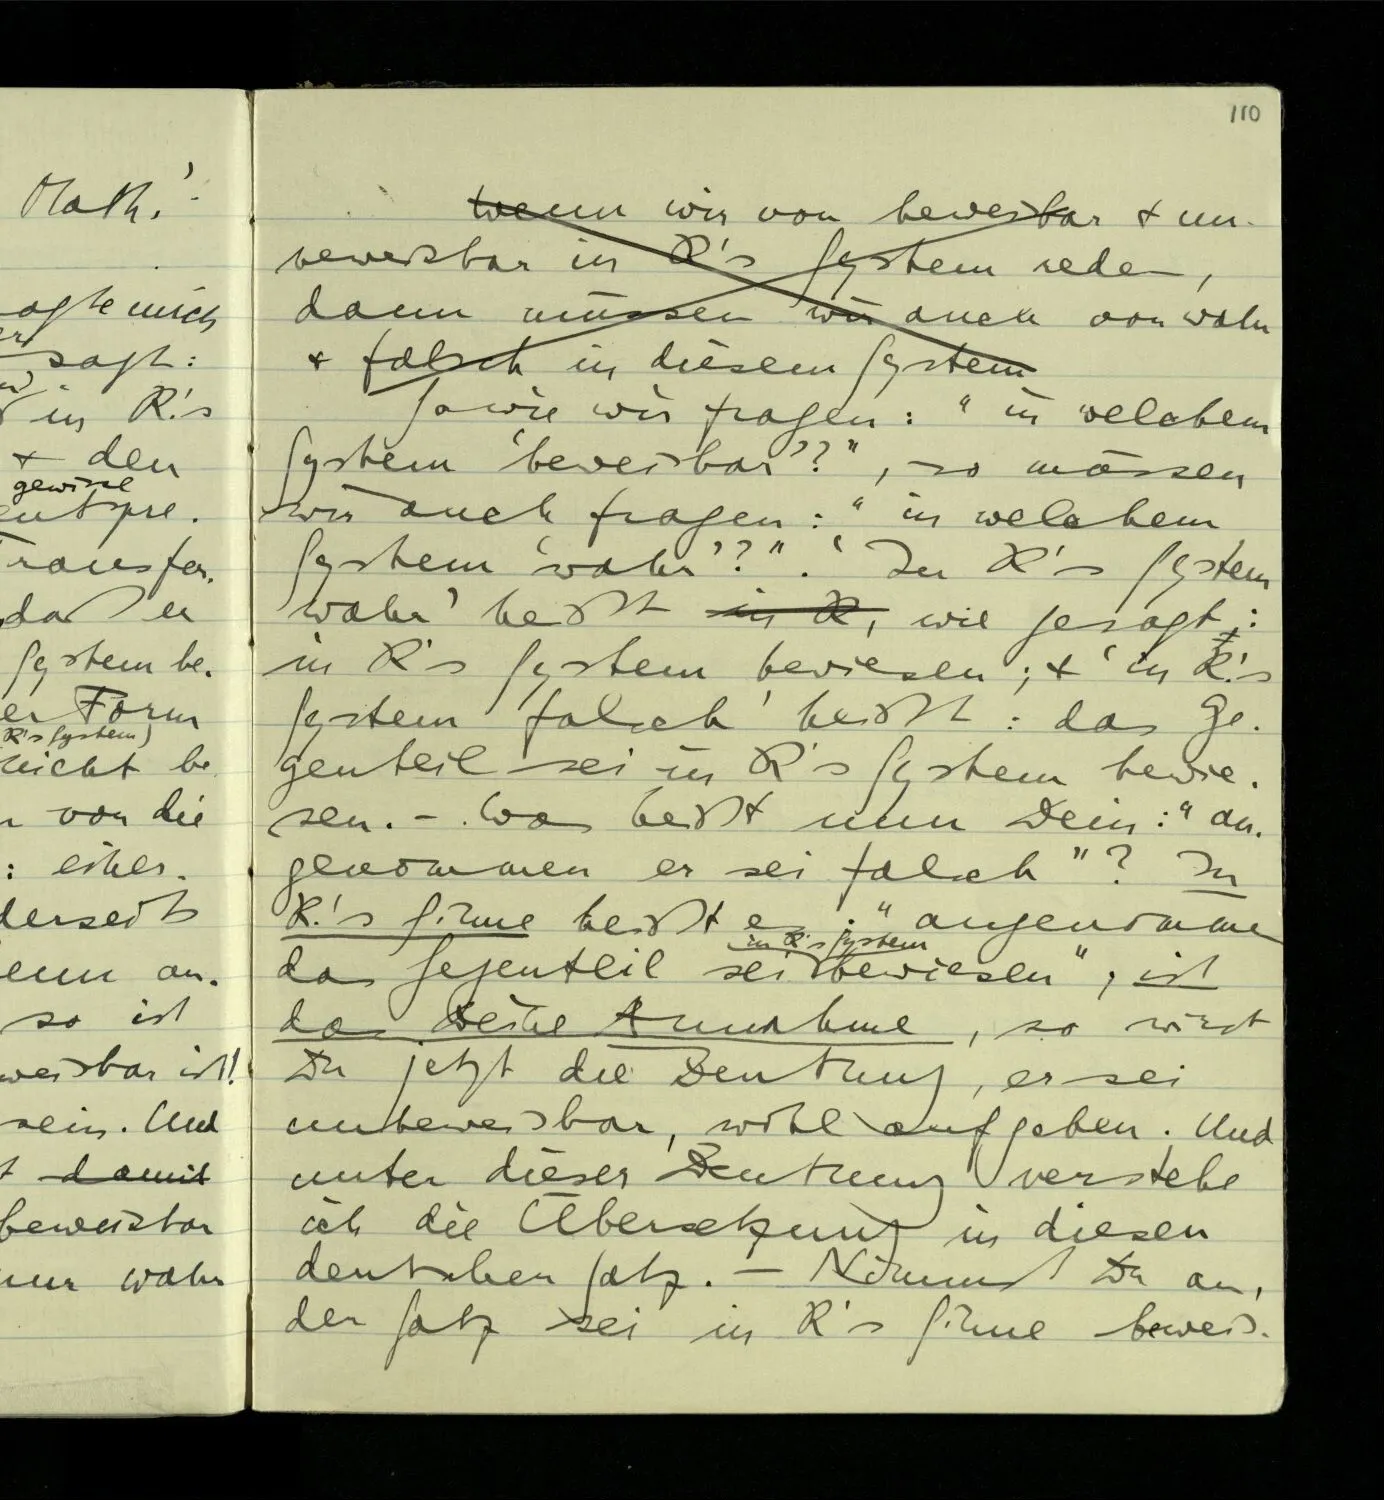 Math.'
ogte mich
er
sagt:
in R.'s
& den
gewisse
entspre-
Transfor-
daß er
System be-
er Form
R's System)
nicht be
von die
: einer-
derseits
enn an-
so ist
weisbar ist!
sein. Und
damit
beweisbar
nur wahr
110
Wenn wir von beweisbar & un-
beweisbar in R's System reden,
dann müssen wir auch von wahr
& falsch in diesem System
Sowie wir fragen: "in welchem
System 'beweisbar'?", so müssen
wir auch fragen: "in welchem
System 'wahr'?". 'In R's System
wahr' heißt in R, wie gesagt:
in R's System bewiesen; & 'in R.'s
System falsch' heißt: das Ge-
genteil sei in R's System bewie-
sen. – Was heißt nun Dein: "an-
genommen er sei falsch"? In
R.'s Sinne heißt es: "angenommen
in R's System
das Gegenteil sei bewiesen", ist
das Deine Annahme, so wirst
Du jetzt die Deutung, er sei
unbeweisbar, wohl aufgeben. Und
unter dieser Deutung verstehe
ich die Übersetzung in diesen
deutschen Satz. – Nimmst Du an,
der Satz sei in R's Sinne beweis-